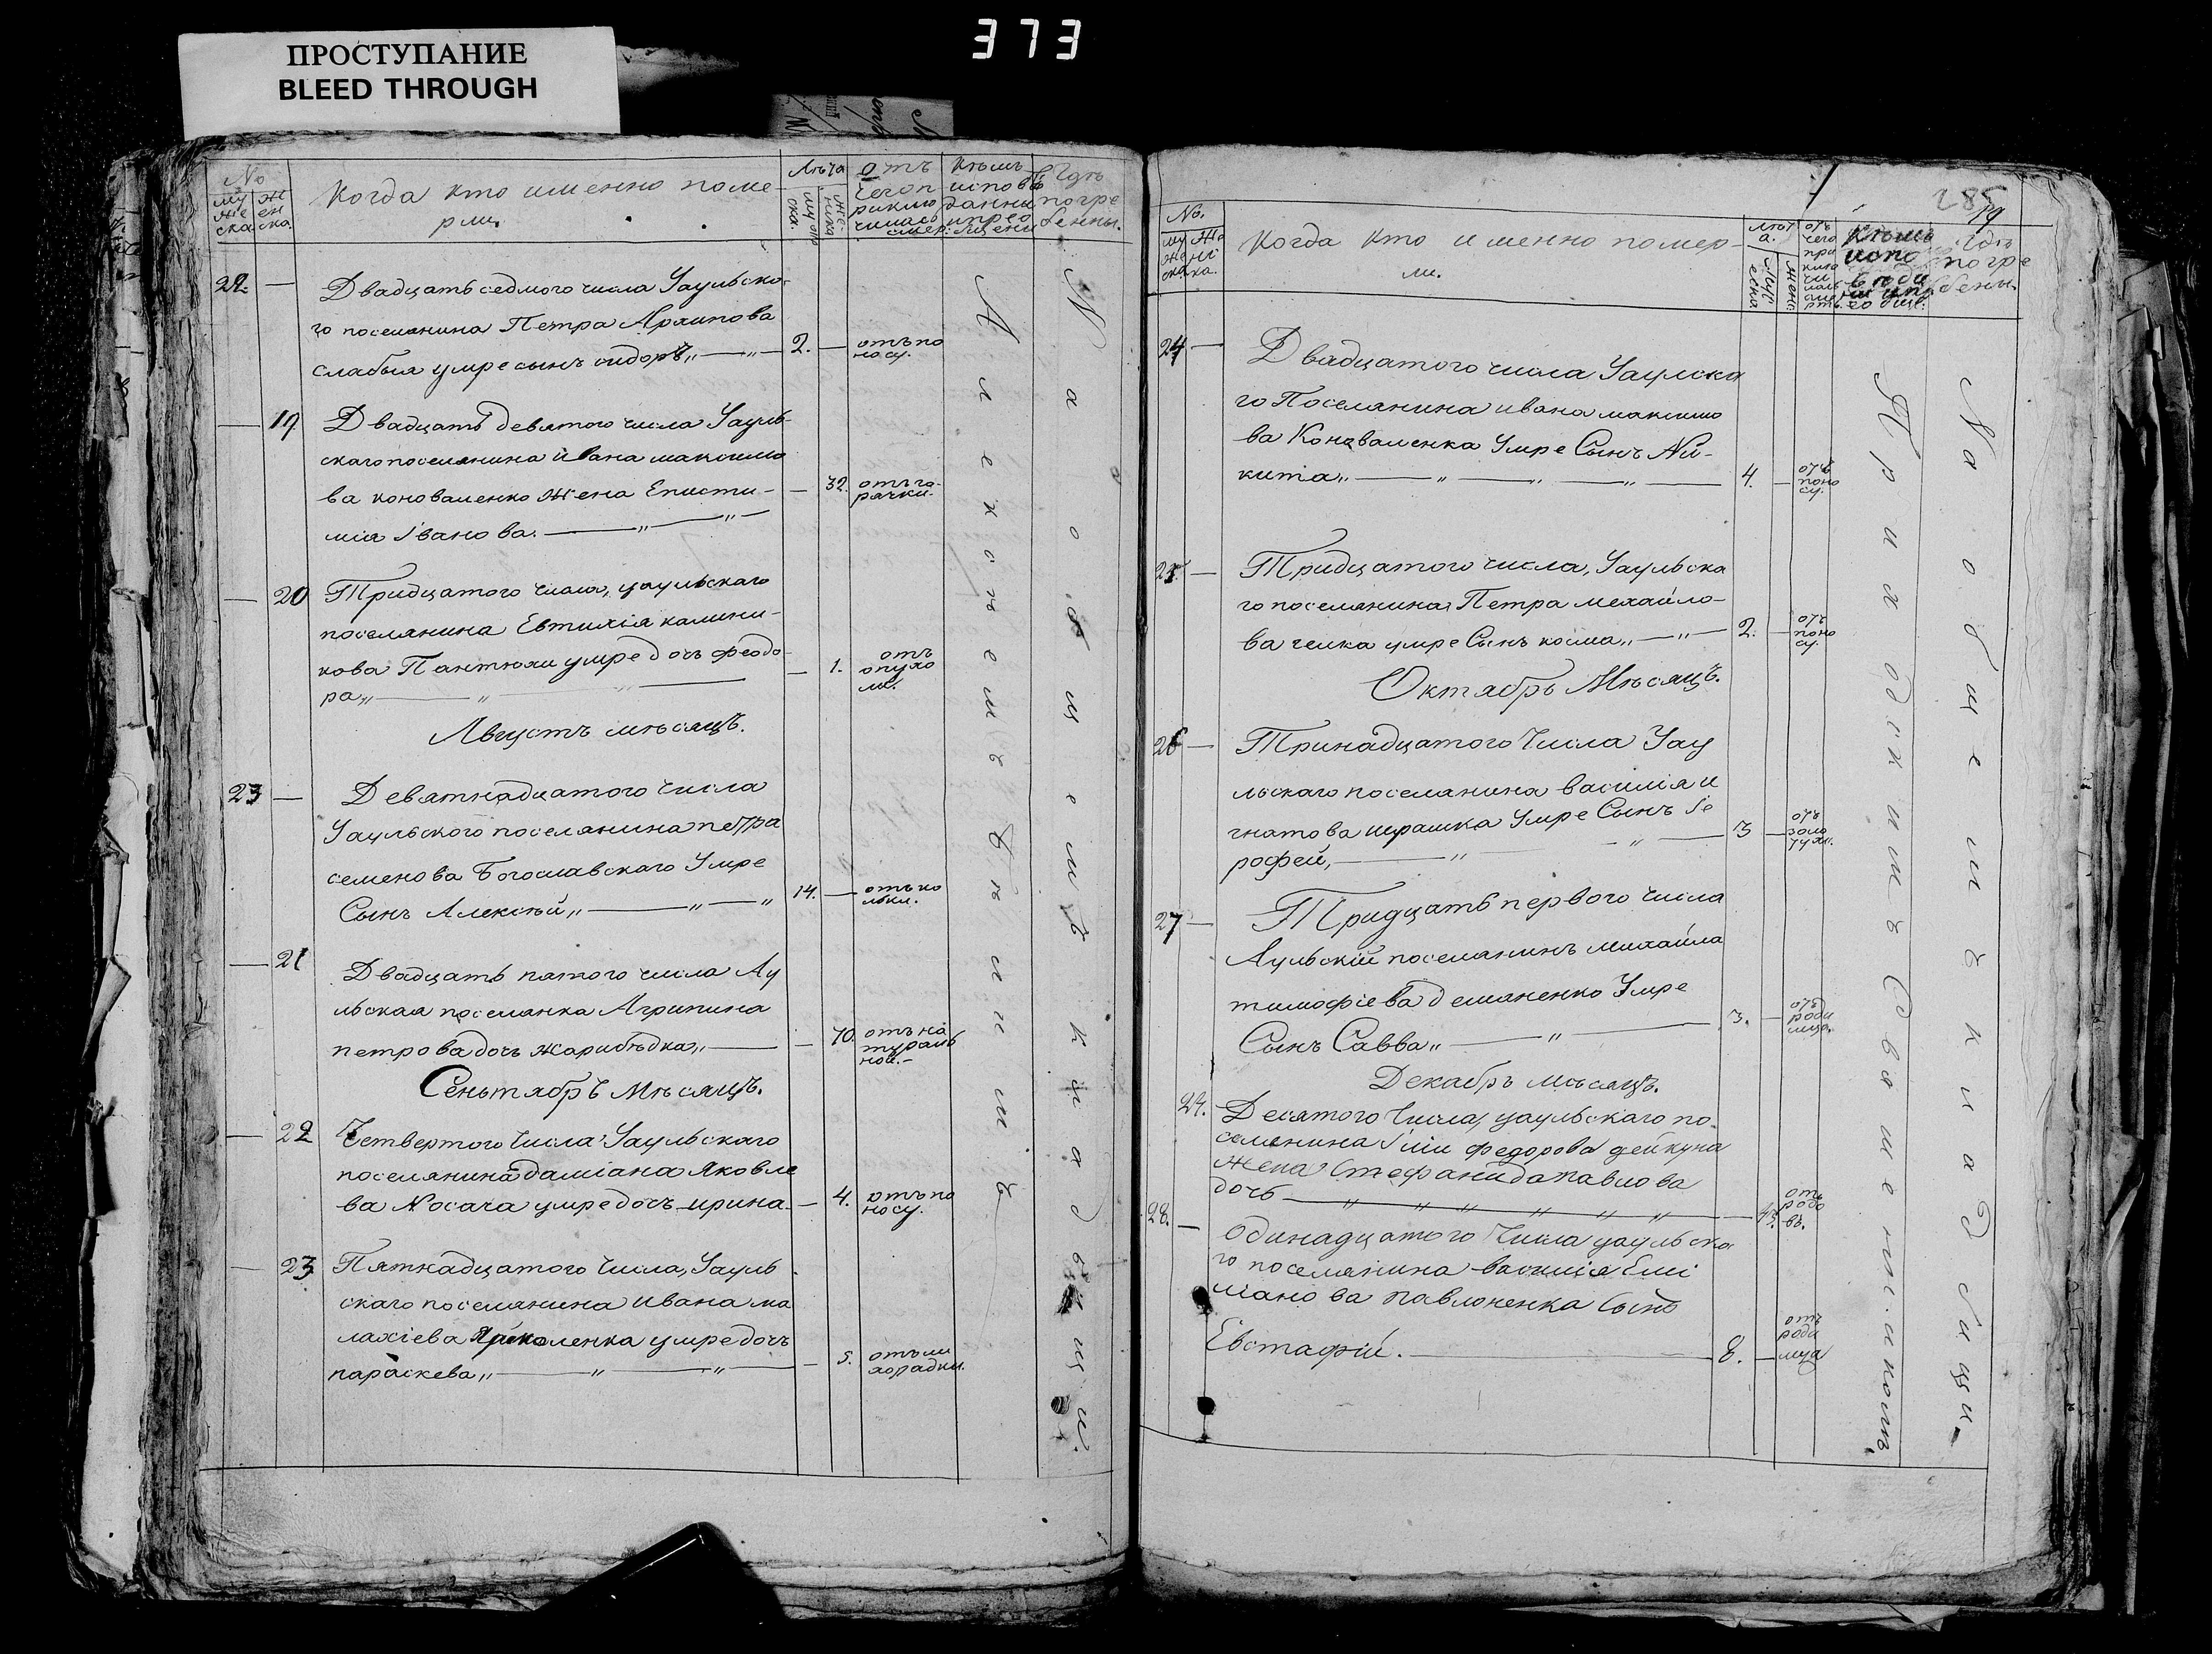 373
ПРОСТУПАНИЕ
BLEED THROUGH
No
му же ска
Же ен ска.
Когда кто именно поме-
рли.
Лѣта
отъ чего п риклю чилась смер:
Кѣмъ исповѣ данны и прео бщени
Гдѣ погре бенны.
22. —
Двадцать седмого числа Уаульско-
го поселянина Петра Архипова
слабыя умре сынъ сидоръ „ — „ — 2. — отъ по
носу.
— 19. Двадцать девятого числа Зауль-
скаго поселянина ивана максимо
ва коноваленко жена Еписти- — 32. отъ го-
рячки.
мія Іванова. — „ — „ —
— 20 Тридцатого числа, уаульскаго
поселянина Евтихія калини-
кова Пантюхи умре дочь феодо- — 1. отъ
опухо
ли.
ра „ — „ — „ —
Августъ мѣсяцъ.
23 — Девятнадцатого числа
Уаульского поселянина петра
семенова Богославского Умре
Сынъ Алексѣй „ — „ — „ 14. — отъ ко
льки.
— 21 Двадцать пятого числа Ау
льская поселянка Агрипина
петрова дочь жарибѣдка „ — — 70. отъ на
тураль
ной. -
Сеньтябрь Мѣсяцъ.
— 22 Четвертого Числа Уаульскаго
поселянина даміана Яковле
ва Носача умре дочь ирина. — 4. отъ по
носу.
— 23 Пятнадцатого Числа, Уауль
скаго поселянина ивана ма
лахіева умре дочь
параскева „ — „ — „ — — 5. отъ ли
хорадки.
На общемъ кладбищи.
285
No.
Когда Кто именно помер-
ли.
Лѣт
а.
отъ чего при клю чи лась сме рть.
Кѣмъ испо вѣда ны и пр ео бще:
Гдѣ погре бены.
24 — Двадцатого числа Уаулска
го Поселянина ивана максимо
ва Коноваленка Умре Сынъ Ни-
кита „ — „ — „ — „ — 4. — отъ
поно
су.
25. — Тридцатого числа, Уаульска
го поселянина Петра михайло-
ва челка умре Сынъ косма „ — „ — 2. — отъ
поно
су.
Октябрь Мѣсяцъ.
26 — Тринадцатого Числа Уау
льскаго поселянина василія и
гнатова ирашка Умре Сынъ Іе
рофей, — „ — „ — 3 — отъ
золо
тухи.
27 — Тридцать первого числа
Аульскій поселянинъ михайла
тимофіева демяненко Умре
Сынъ Савва „ — „ — 3. — отъ
роди
мца.
Декабрь мѣсяцъ.
24. Десятого Числа, уаульскаго по-
селянина Іліи федорова дейкуна
жена Стефанида павлова
дочь — „ — „ — „ — „ — „ — „ — отъ
родо
въ.
28. — Одинадцатого Числа уаульска
го поселянина василія Емі
ліанова павлоненка Сынъ
Евстафій. — 8. — отъ
роди
мца
Приходскимъ Священникомъ
На общемъ кладбищи.